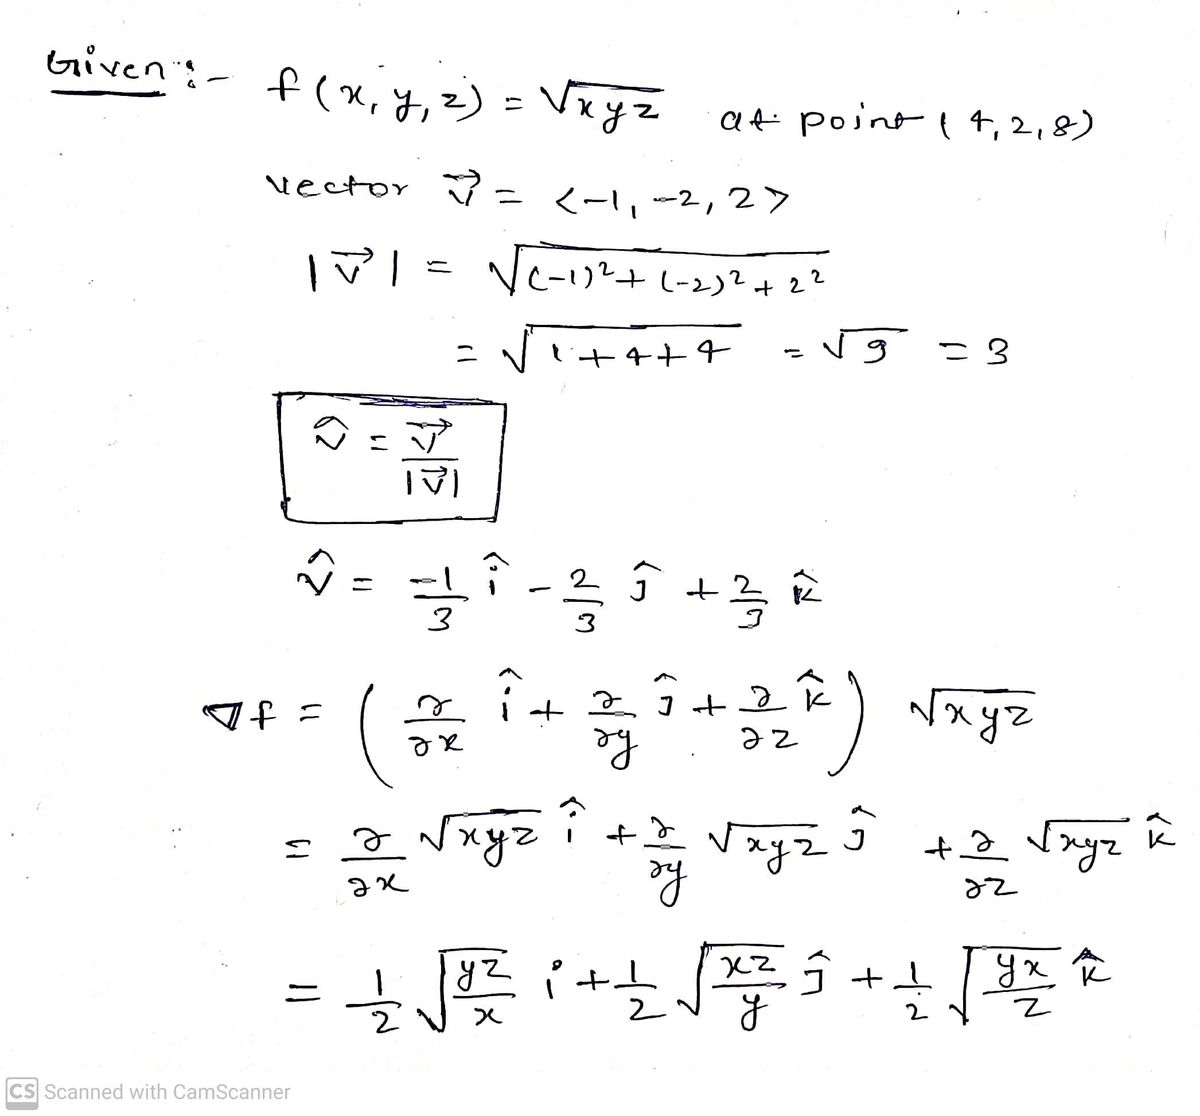 Given :- f(x, y, z) = √xyz at point (4, 2, 8)
vector v⃗ = <-1, -2, 2>
|v⃗| = √(-1)² + (-2)² + 2²
= √1+4+4 = √9 = 3
v̂ = v⃗/|v⃗|
v̂ = -1/3 î - 2/3 ĵ + 2/3 k̂
∇f = (∂/∂x î + ∂/∂y ĵ + ∂/∂z k̂) √xyz
= ∂/∂x √xyz î + ∂/∂y √xyz ĵ + ∂/∂z √xyz k̂
= 1/2 √yz/x i + 1/2 √xz/y ĵ + 1/2 √yx/z k̂
CS Scanned with CamScanner